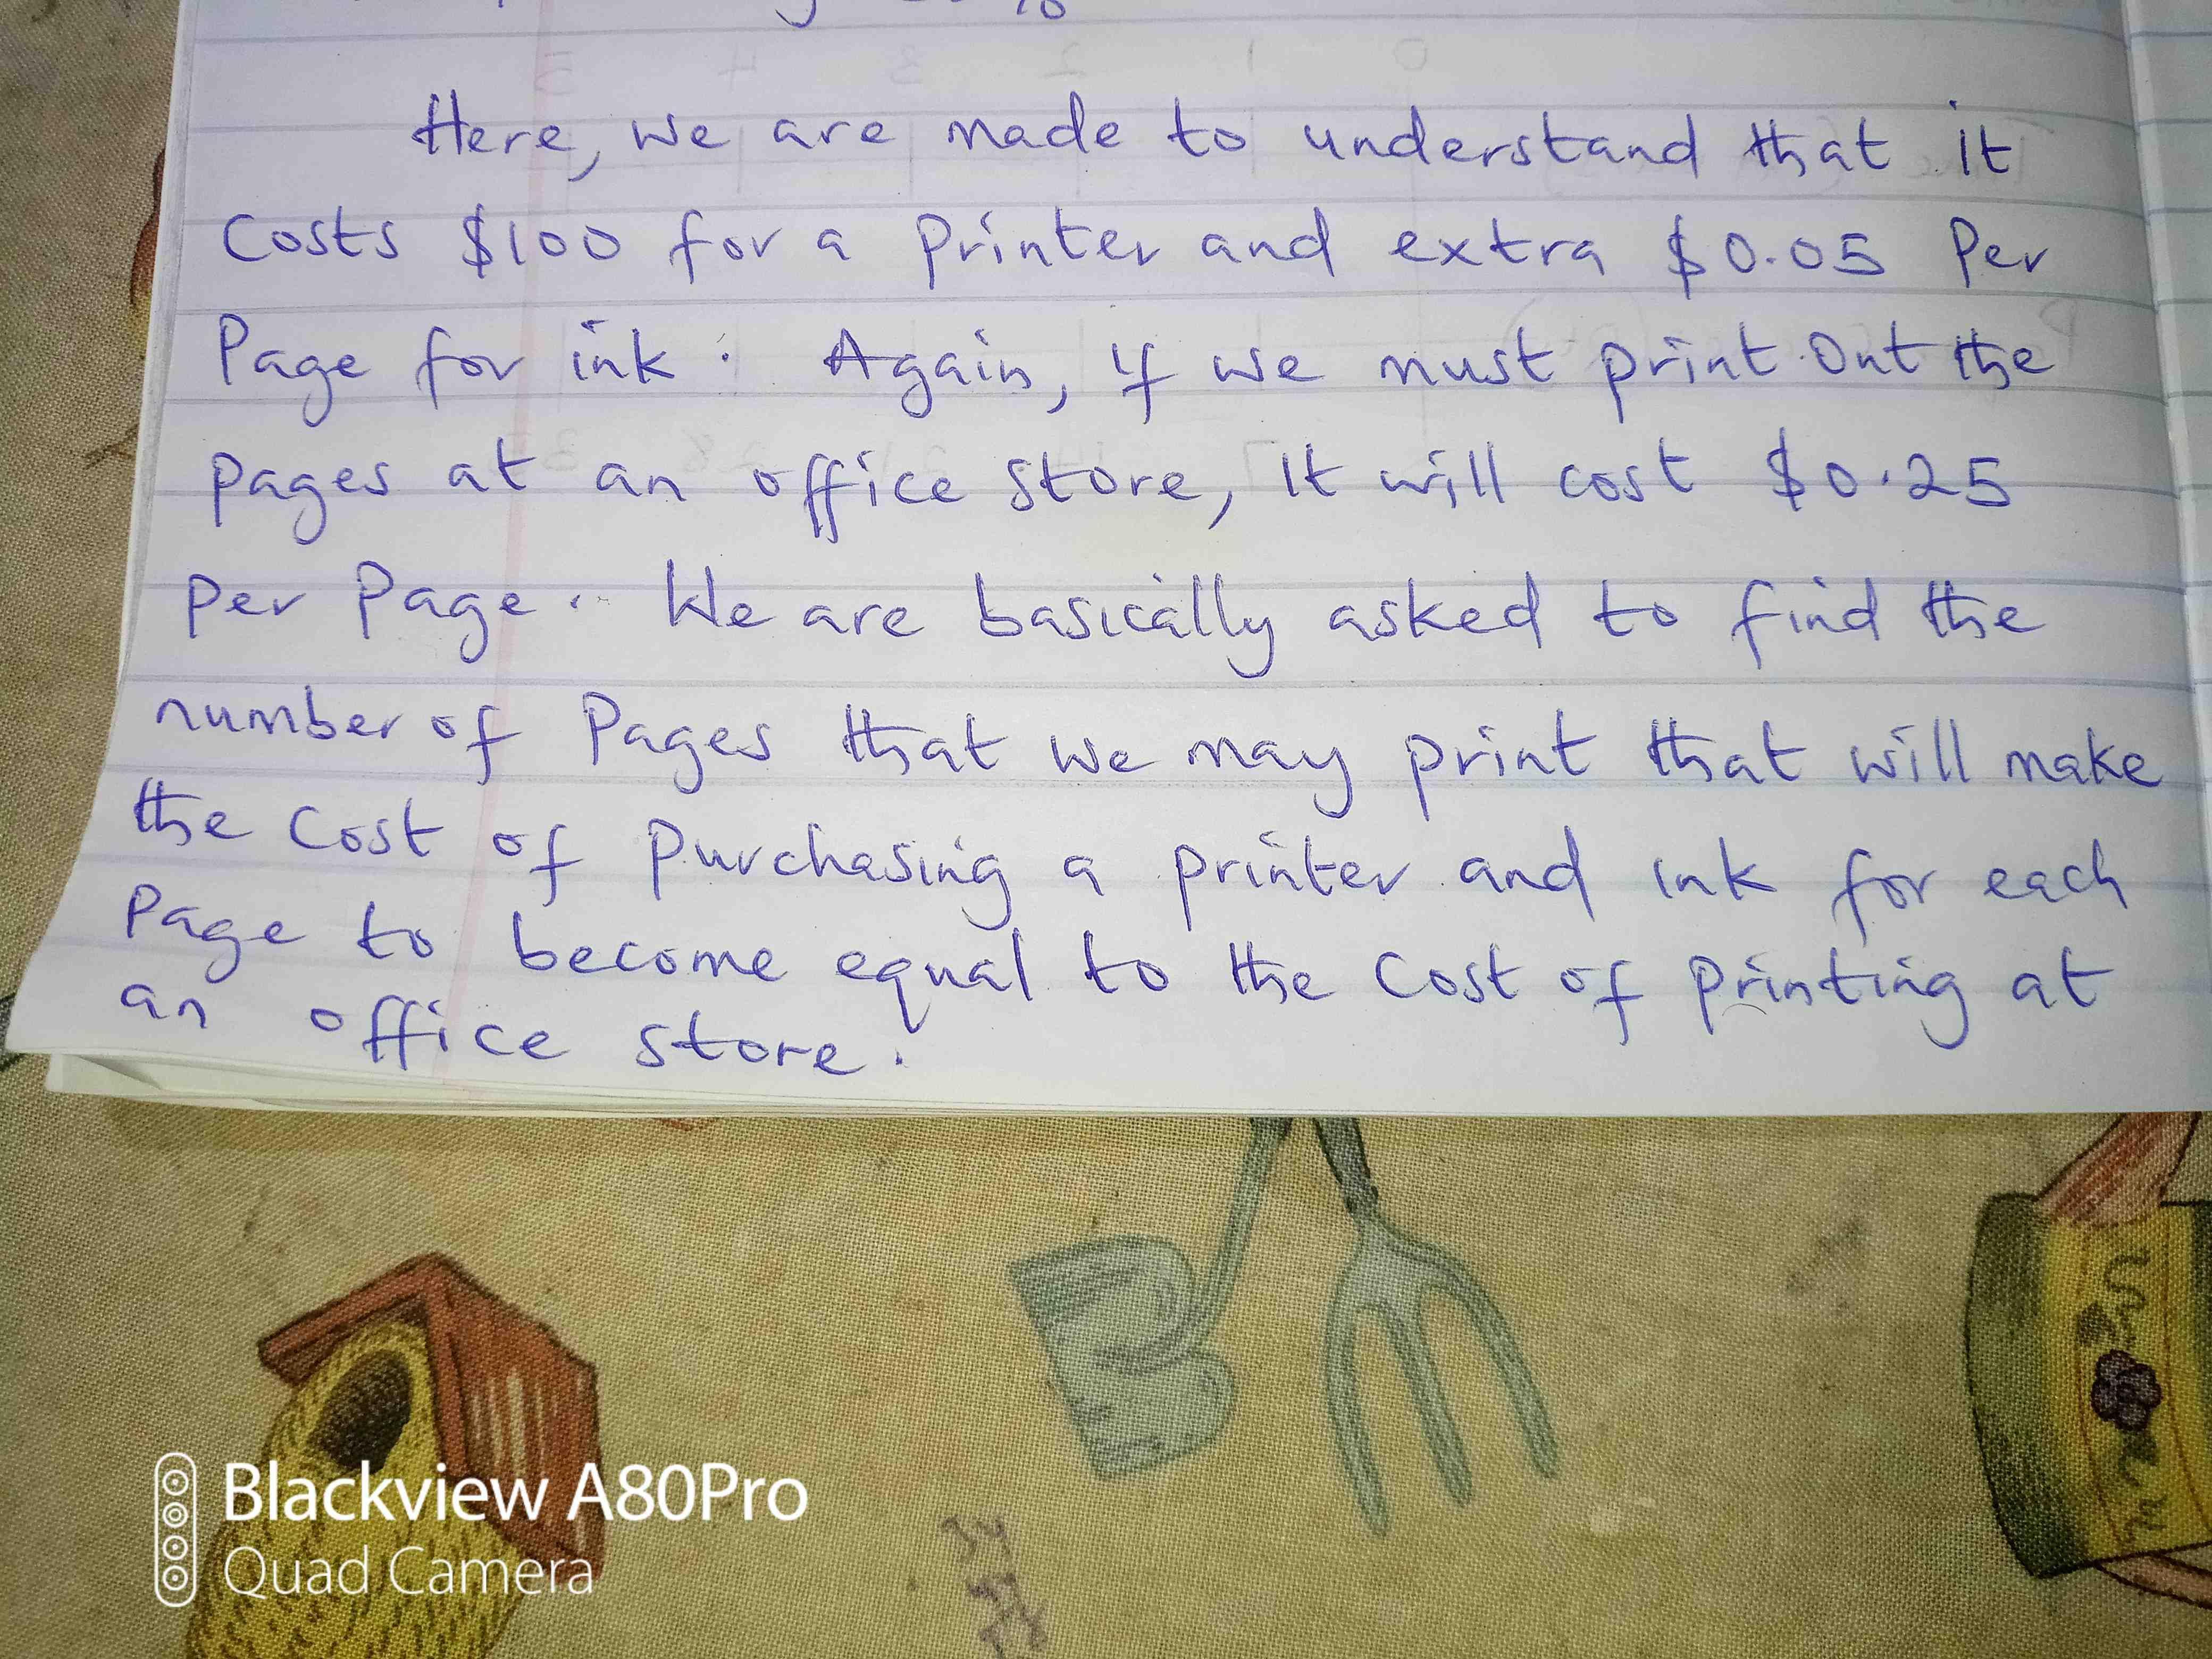 Here, we are made to understand that it
costs $100 for a printer and extra $0.05 Per
Page for ink. Again, if we must print Out the
pages at an office store, It will cost $0.25
per Page. We are basically asked to find the
number of Pages that we may print that will make
the Cost of Purchasing a printer and ink for each
Page to become equal to the Cost of Printing at
an office store.
Blackview A80Pro
Quad Camera